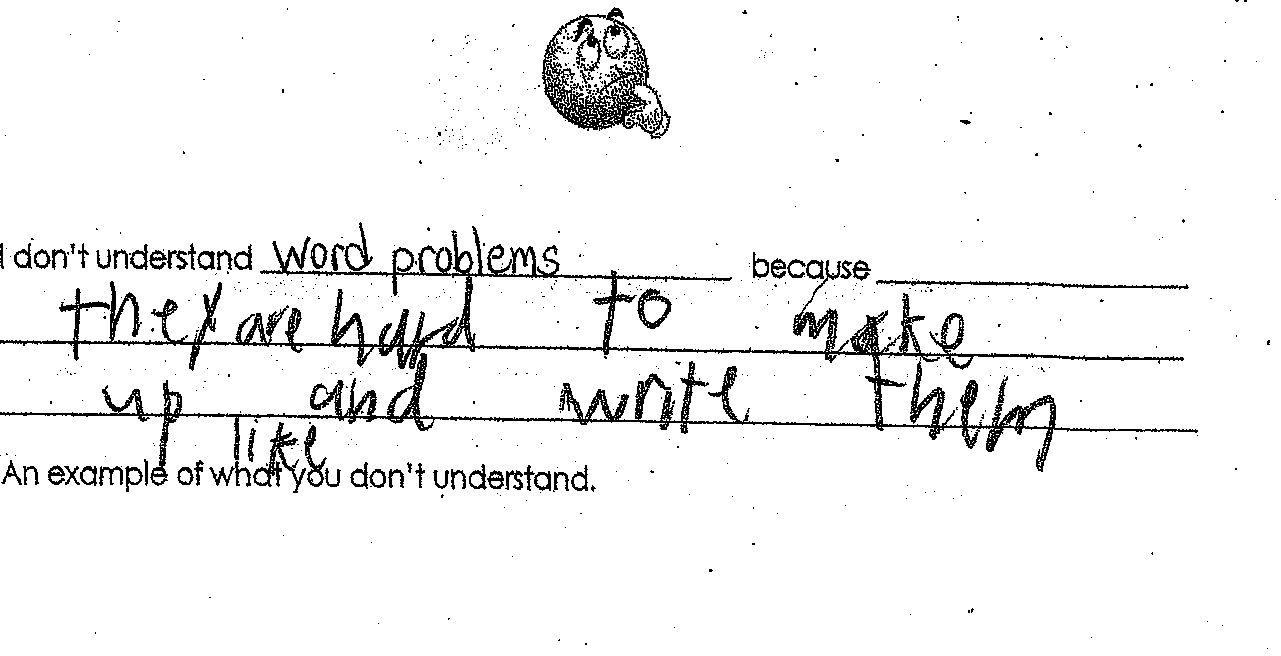 I don't understand word problems because
they are hard to make
up and write them
like
An example of what you don't understand.